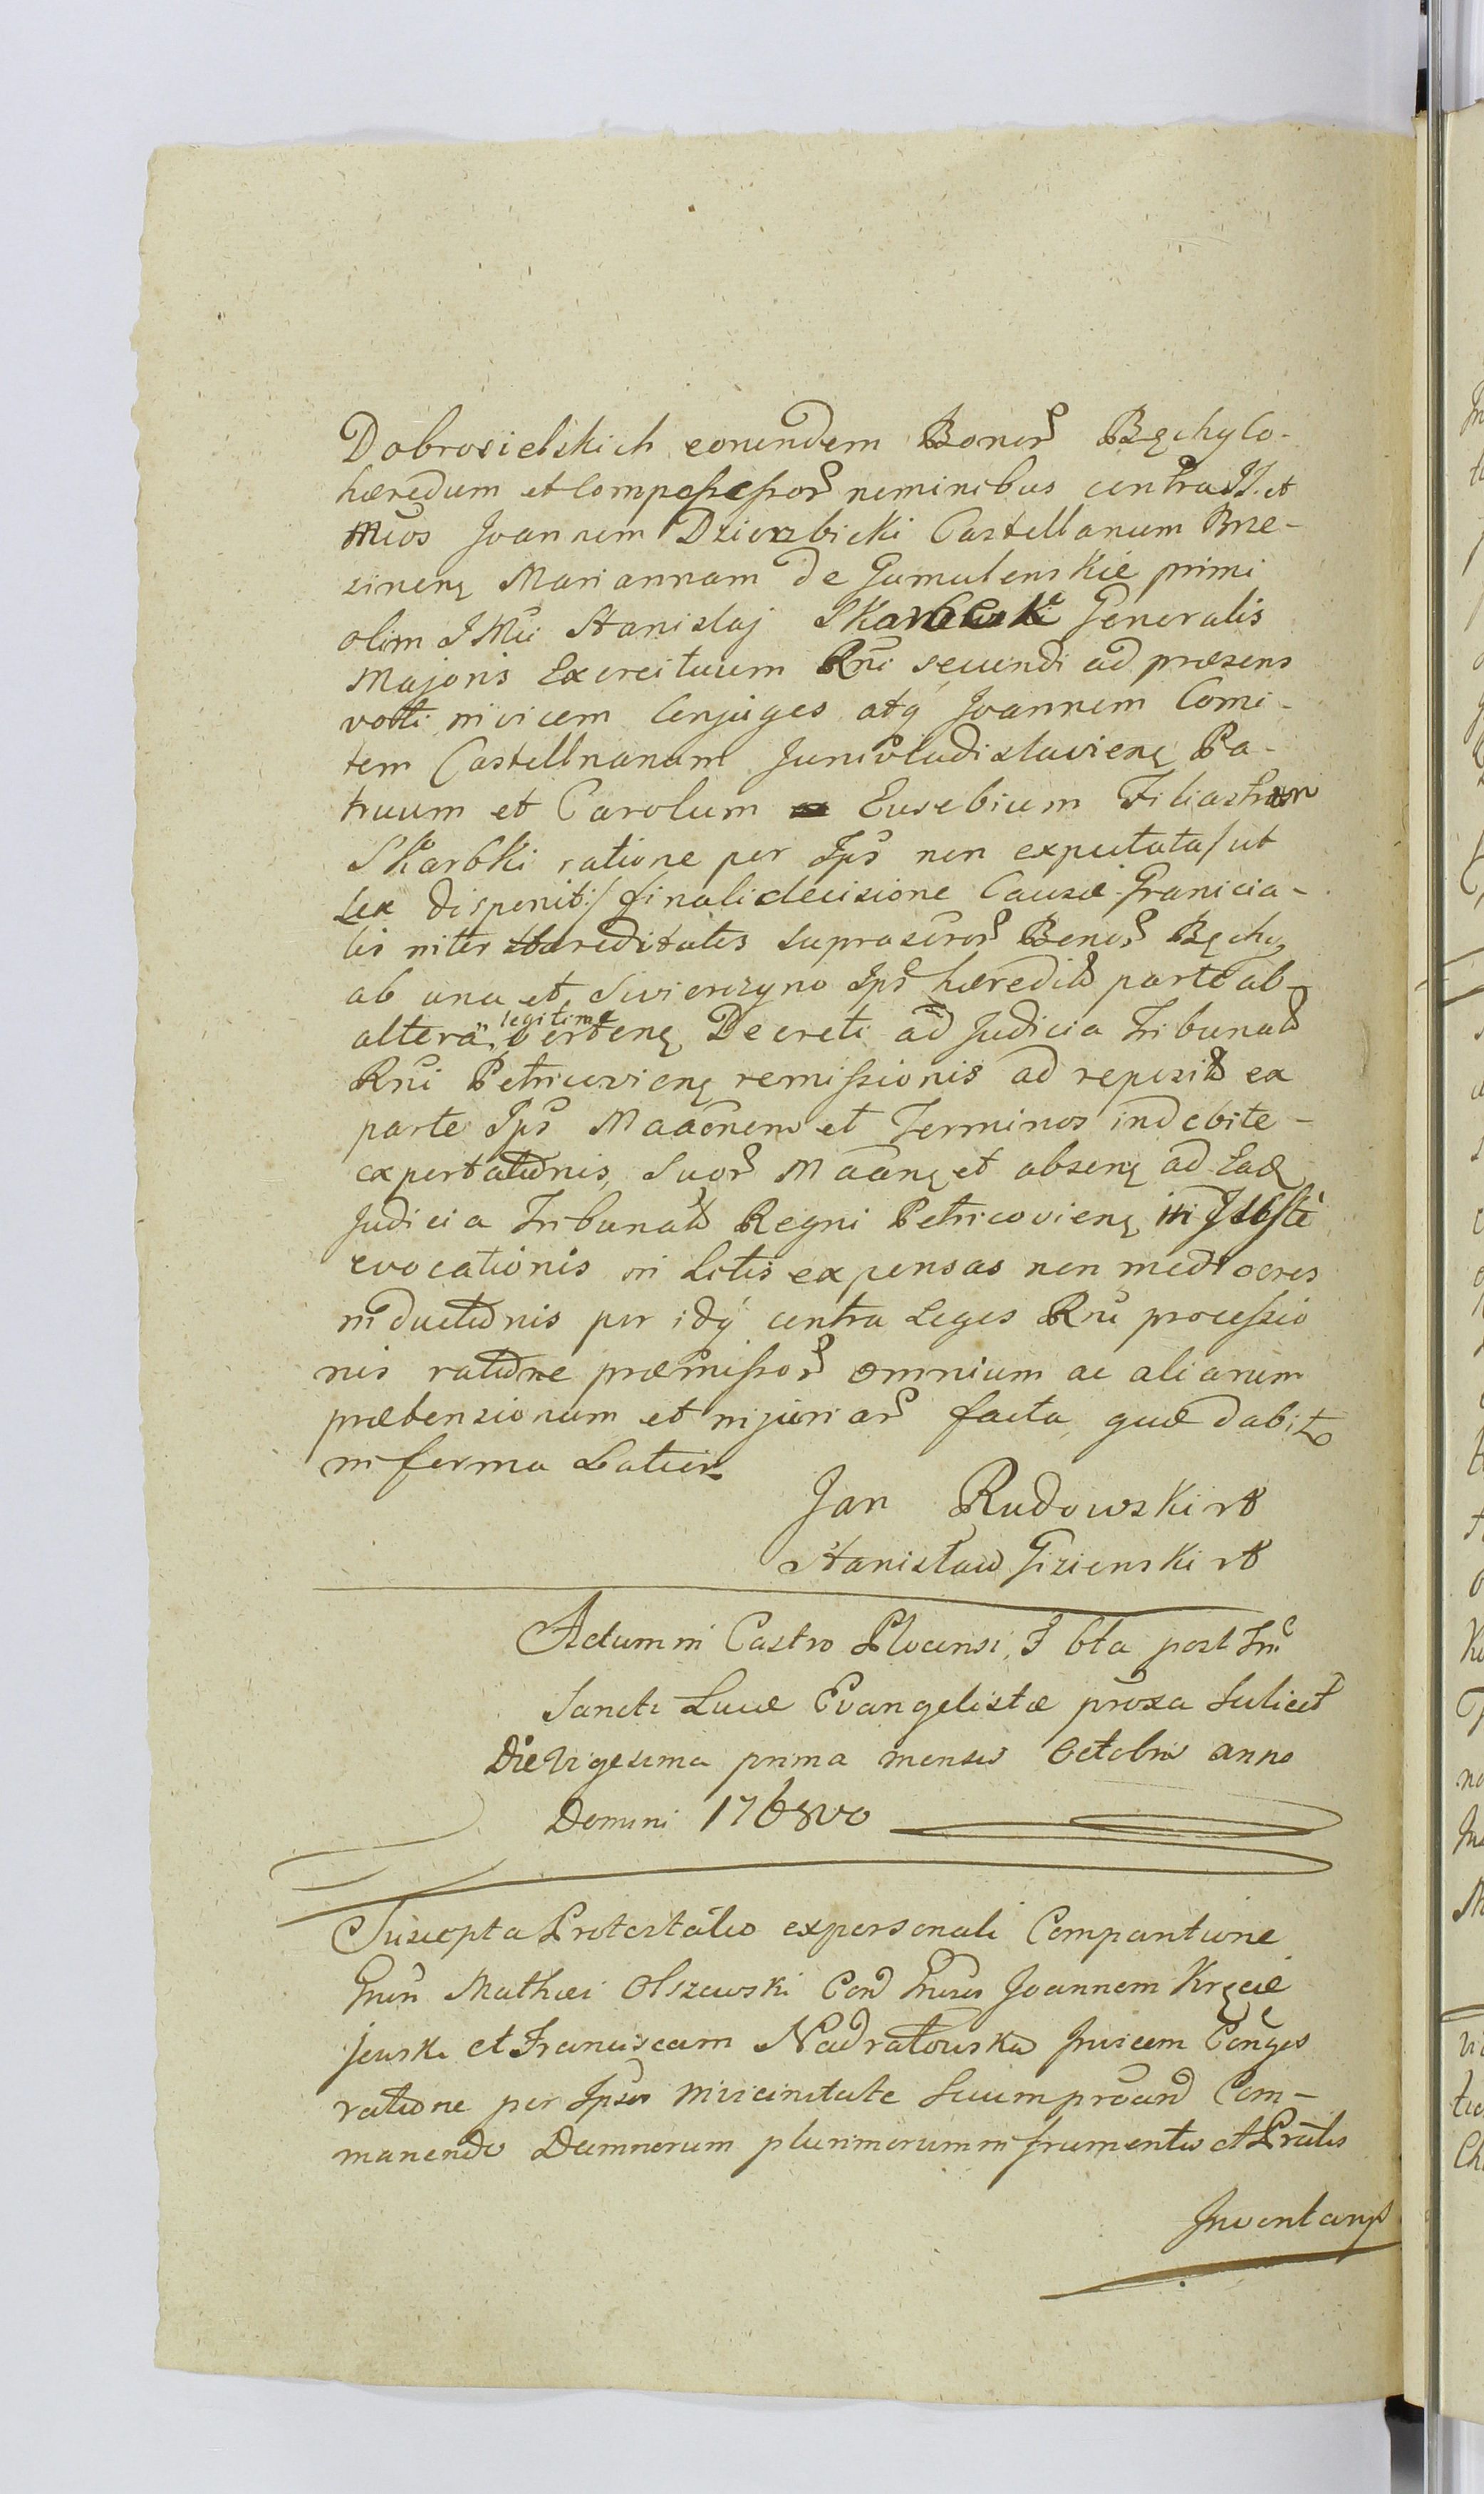 Dobrosielskich eorundem Bonor Bęchy Co-
hæredum et Compossessor nominibus contra JJ. et
Mcos Joannem Dzierzbicki Castellanum Brze-
zinens Mariannam de Gumulenskie primi
olim J Mci Stanislaj Skarbek Generalis
Majoris Exercituum Rni secundi ad præsens
votti invicem Conjuges atq Joannem Comi-
tem Castellnanum Junivladislaviens Pa-
truum et Carolum Eusebium Filiastrum
Skarbki ratione per Ips non expectata /ut
Lex disponit:/ finali decisione Causæ Granicia-
lis inter hæreditates suprascror Bonor Bęchy
ab una et Swierczyno Ips hæredit parte ab
altera, legitime vertens Decreti ad Judicia Tribunat
Rni Petricoviens remissionis ad reposit ex
parte Ips Maaonem et Terminos indebite
expertationis, Suor Maans et absens ad Ead
Judicia Tribunat Regni Petricoviens injuste
evocationis in Litis expensas non mediocres
inductionis per idq contra Leges Rni processio
nis ratione præmissor omnium ac aliarum
prætensionum et injuriar facta, quæ dabit
in forma Latior
Jan Rudowski
Stanisław Gizienski
Actum in Castro Plocensi, F 6ta post Fm
Sancti Lucæ Evangelistæ proxa Sulicet
Die Vigesima prima mensis Octobris anno
Domini 1768vo
Suscepta Protestatio ex personali Comparitione
Gnsi Mathæi Olszewski Con Gnsos Joannem Kręcie
jewski et Franciscam Nadratowska Invicem Conges
ratione per Ipsos in vicinitate Suum proand Com-
manendo Damnorum plurimorum in frumentis et Pratis
Inventarys